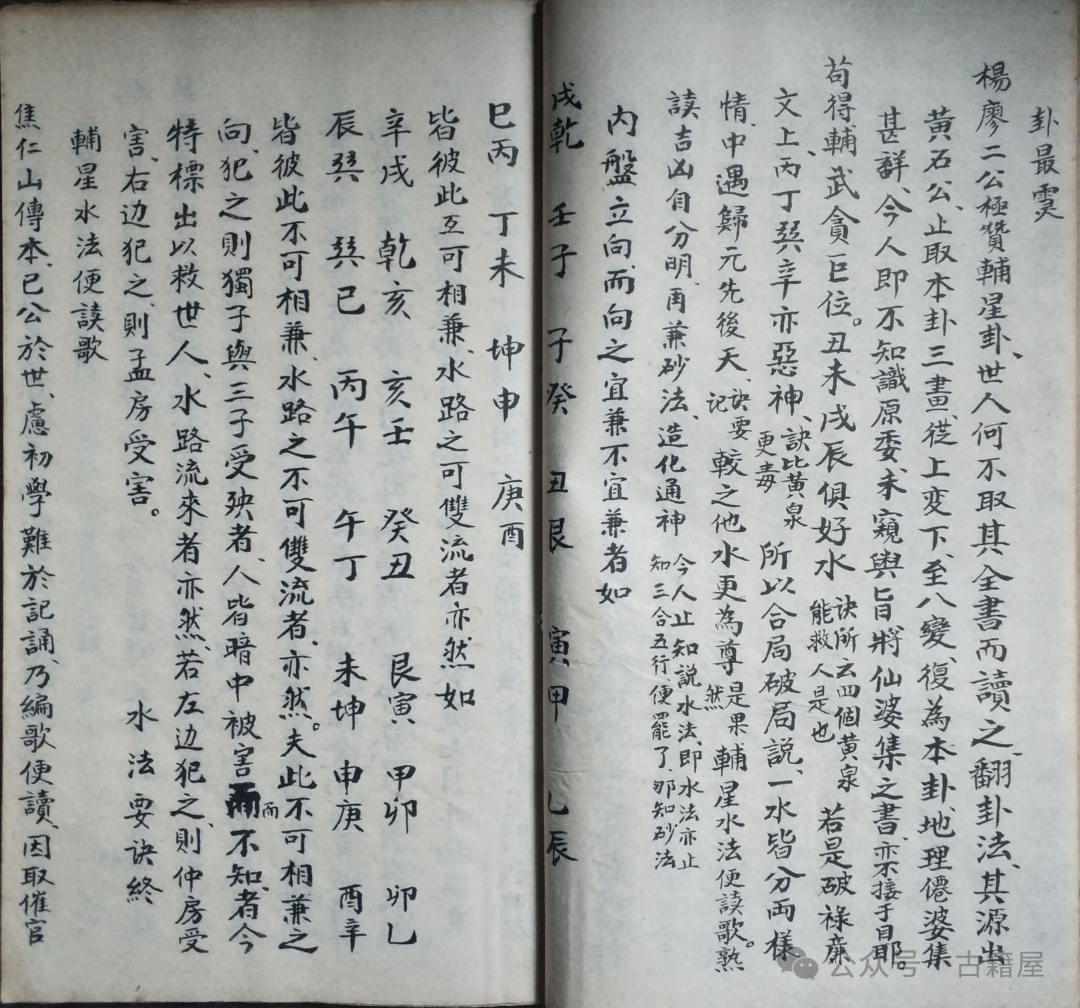 卦最灵
楊廖二公極贊輔星卦、世人何不取其全書而讀之、翻卦法、其源出
黄石公、止取本卦三畫、從上变下、至八變、復為本卦、地理僊婆集
甚詳、今人即不知識原委、未窺輿旨、將仙婆集之書、亦不接于目耶。
苟得輔武貪巨位。丑未戌辰俱好水 诀所云四個黄泉能救人是也 若是破祿廉
文上丙丁巽辛亦惡神、訣比黄泉更毒 所以合局破局説、一水皆分両樣
情、中遇歸元先後天、诀要记 較之他水更為尊 是果然 輔星水法便讀歌熟
讀吉凶自分明、再兼砂法、造化通神 今人止知説水法、即水法亦止知三合五行、便罷了、那知砂法
内盤立向、而向之宜兼不宜兼者如
戌乾 壬子 子癸 丑艮 寅甲 乙辰
巳丙 丁未 坤申 庚酉
皆彼此互可相兼、水路之可雙流者亦然如
辛戌 乾亥 亥壬 癸丑 艮寅 甲卯 卯乙
辰巽 巽巳 丙午 午丁 未坤 申庚 酉辛
皆彼此不可相兼、水路之不可雙流者、亦然。夫此不可相兼之
向、犯之則獨子與三子受殃者、人皆暗中被害而不知、者今
特標出以救世人、水路流來者亦然、若左边犯之、則仲房受
害、右边犯之、則孟房受害。 水法要诀終
輔星水法便讀歌
焦仁山傳本、已公於世、慮初學難於記誦、乃編歌便讀、因取催官
公众号·古籍屋